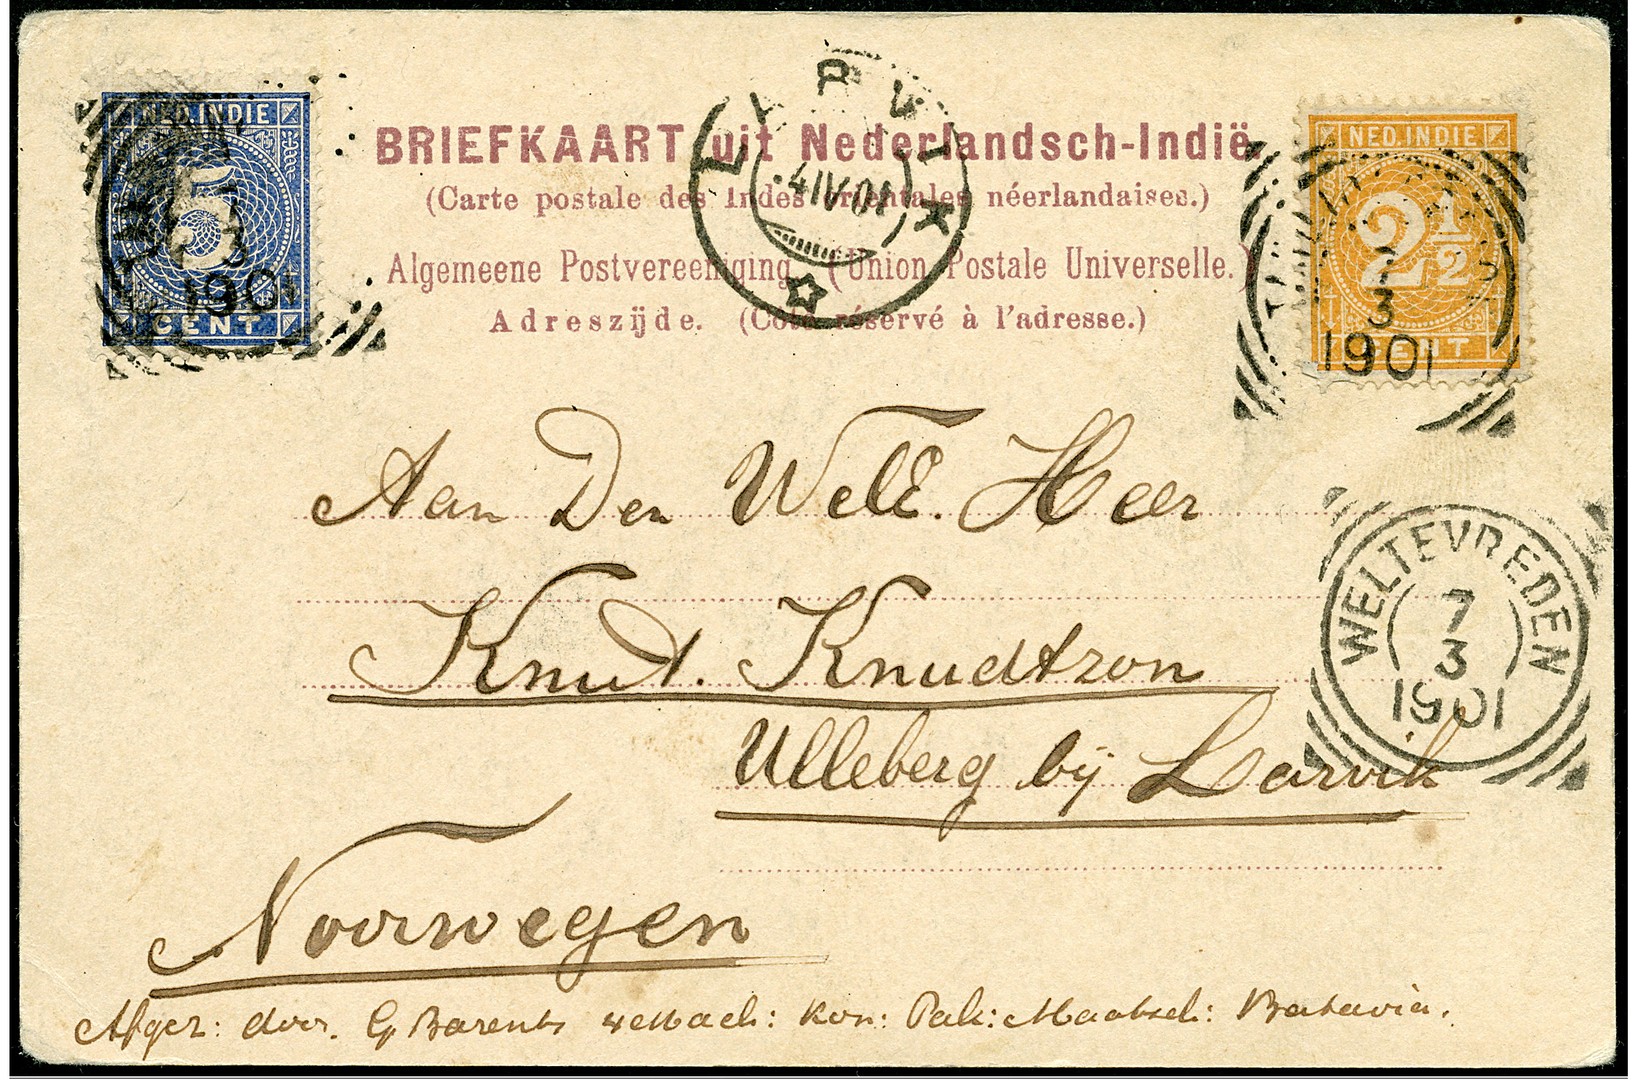 NED. INDIE
5
CENT
3
1901
LARVIK
-4 IV 01
NED. INDIE
2 1/2
CENT
7
3
1901
BRIEFKAART uit Nederlandsch-Indië.
(Carte postale des Indes orientales néerlandaises.)
Algemeene Postvereeniging. (Union Postale Universelle.)
Adreszijde. (Coté réservé à l'adresse.)
WELTEVREDEN
7
3
1901
Aan Den WelE. Heer
Knut. Knudtzon
Ulleberg bij Larvik
Noorwegen
Afgez: door. G Barents Kon: Pak: Maatsch: Batavia.